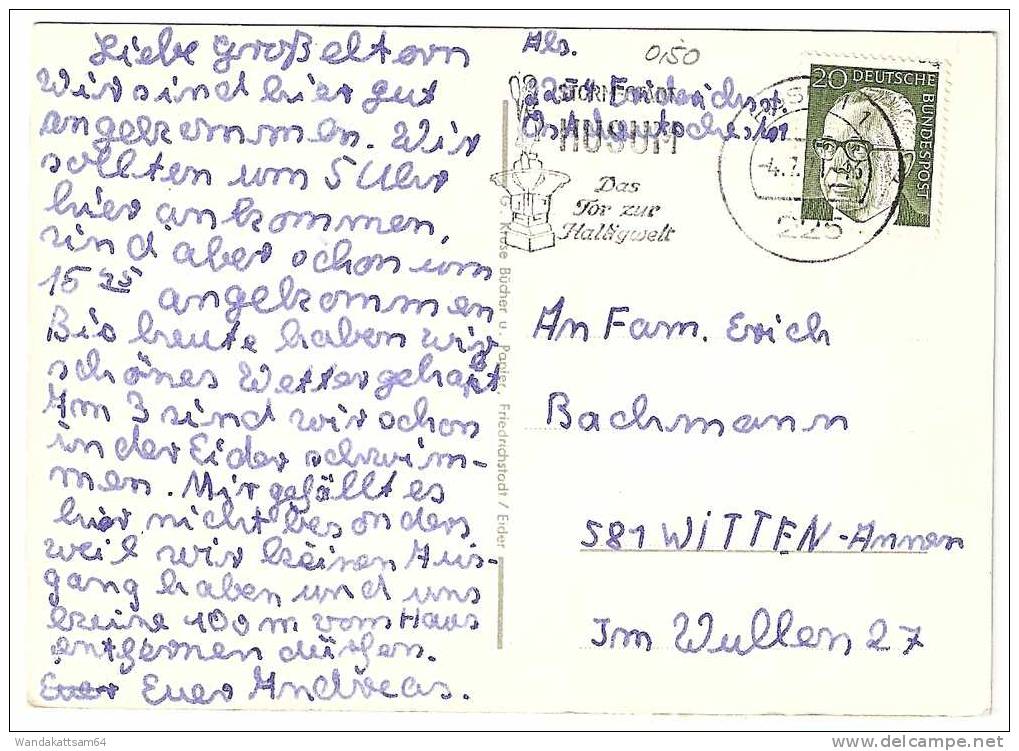 Liebe Großeltern
Wir sind hier gut
angekommen. Wir
sollten um 5 Uhr
hier ankommen,
sind aber schon um
15 25 angekommen
Bis heute haben wir
schönes Wetter gehabt
Am 3 sind wir schon
in der Eider schwim-
men. Mir gefällt es
hier nicht besonders
weil wir keinen Aus-
gang haben und uns
keine 100 m vom Haus
entfernen dürfen.
Euer Andreas.
G. Kruse Bücher u. Papier, Friedrichstadt / Eider
Abs.
0,50
HUSUM
Das
Tor zur
Halligwelt
20 DEUTSCHE BUNDESPOST
225
An Fam. Erich
Bachmann
581 WITTEN-Annen
Im Wullen 27
Wandakattsam64
http://www.delcampe.net